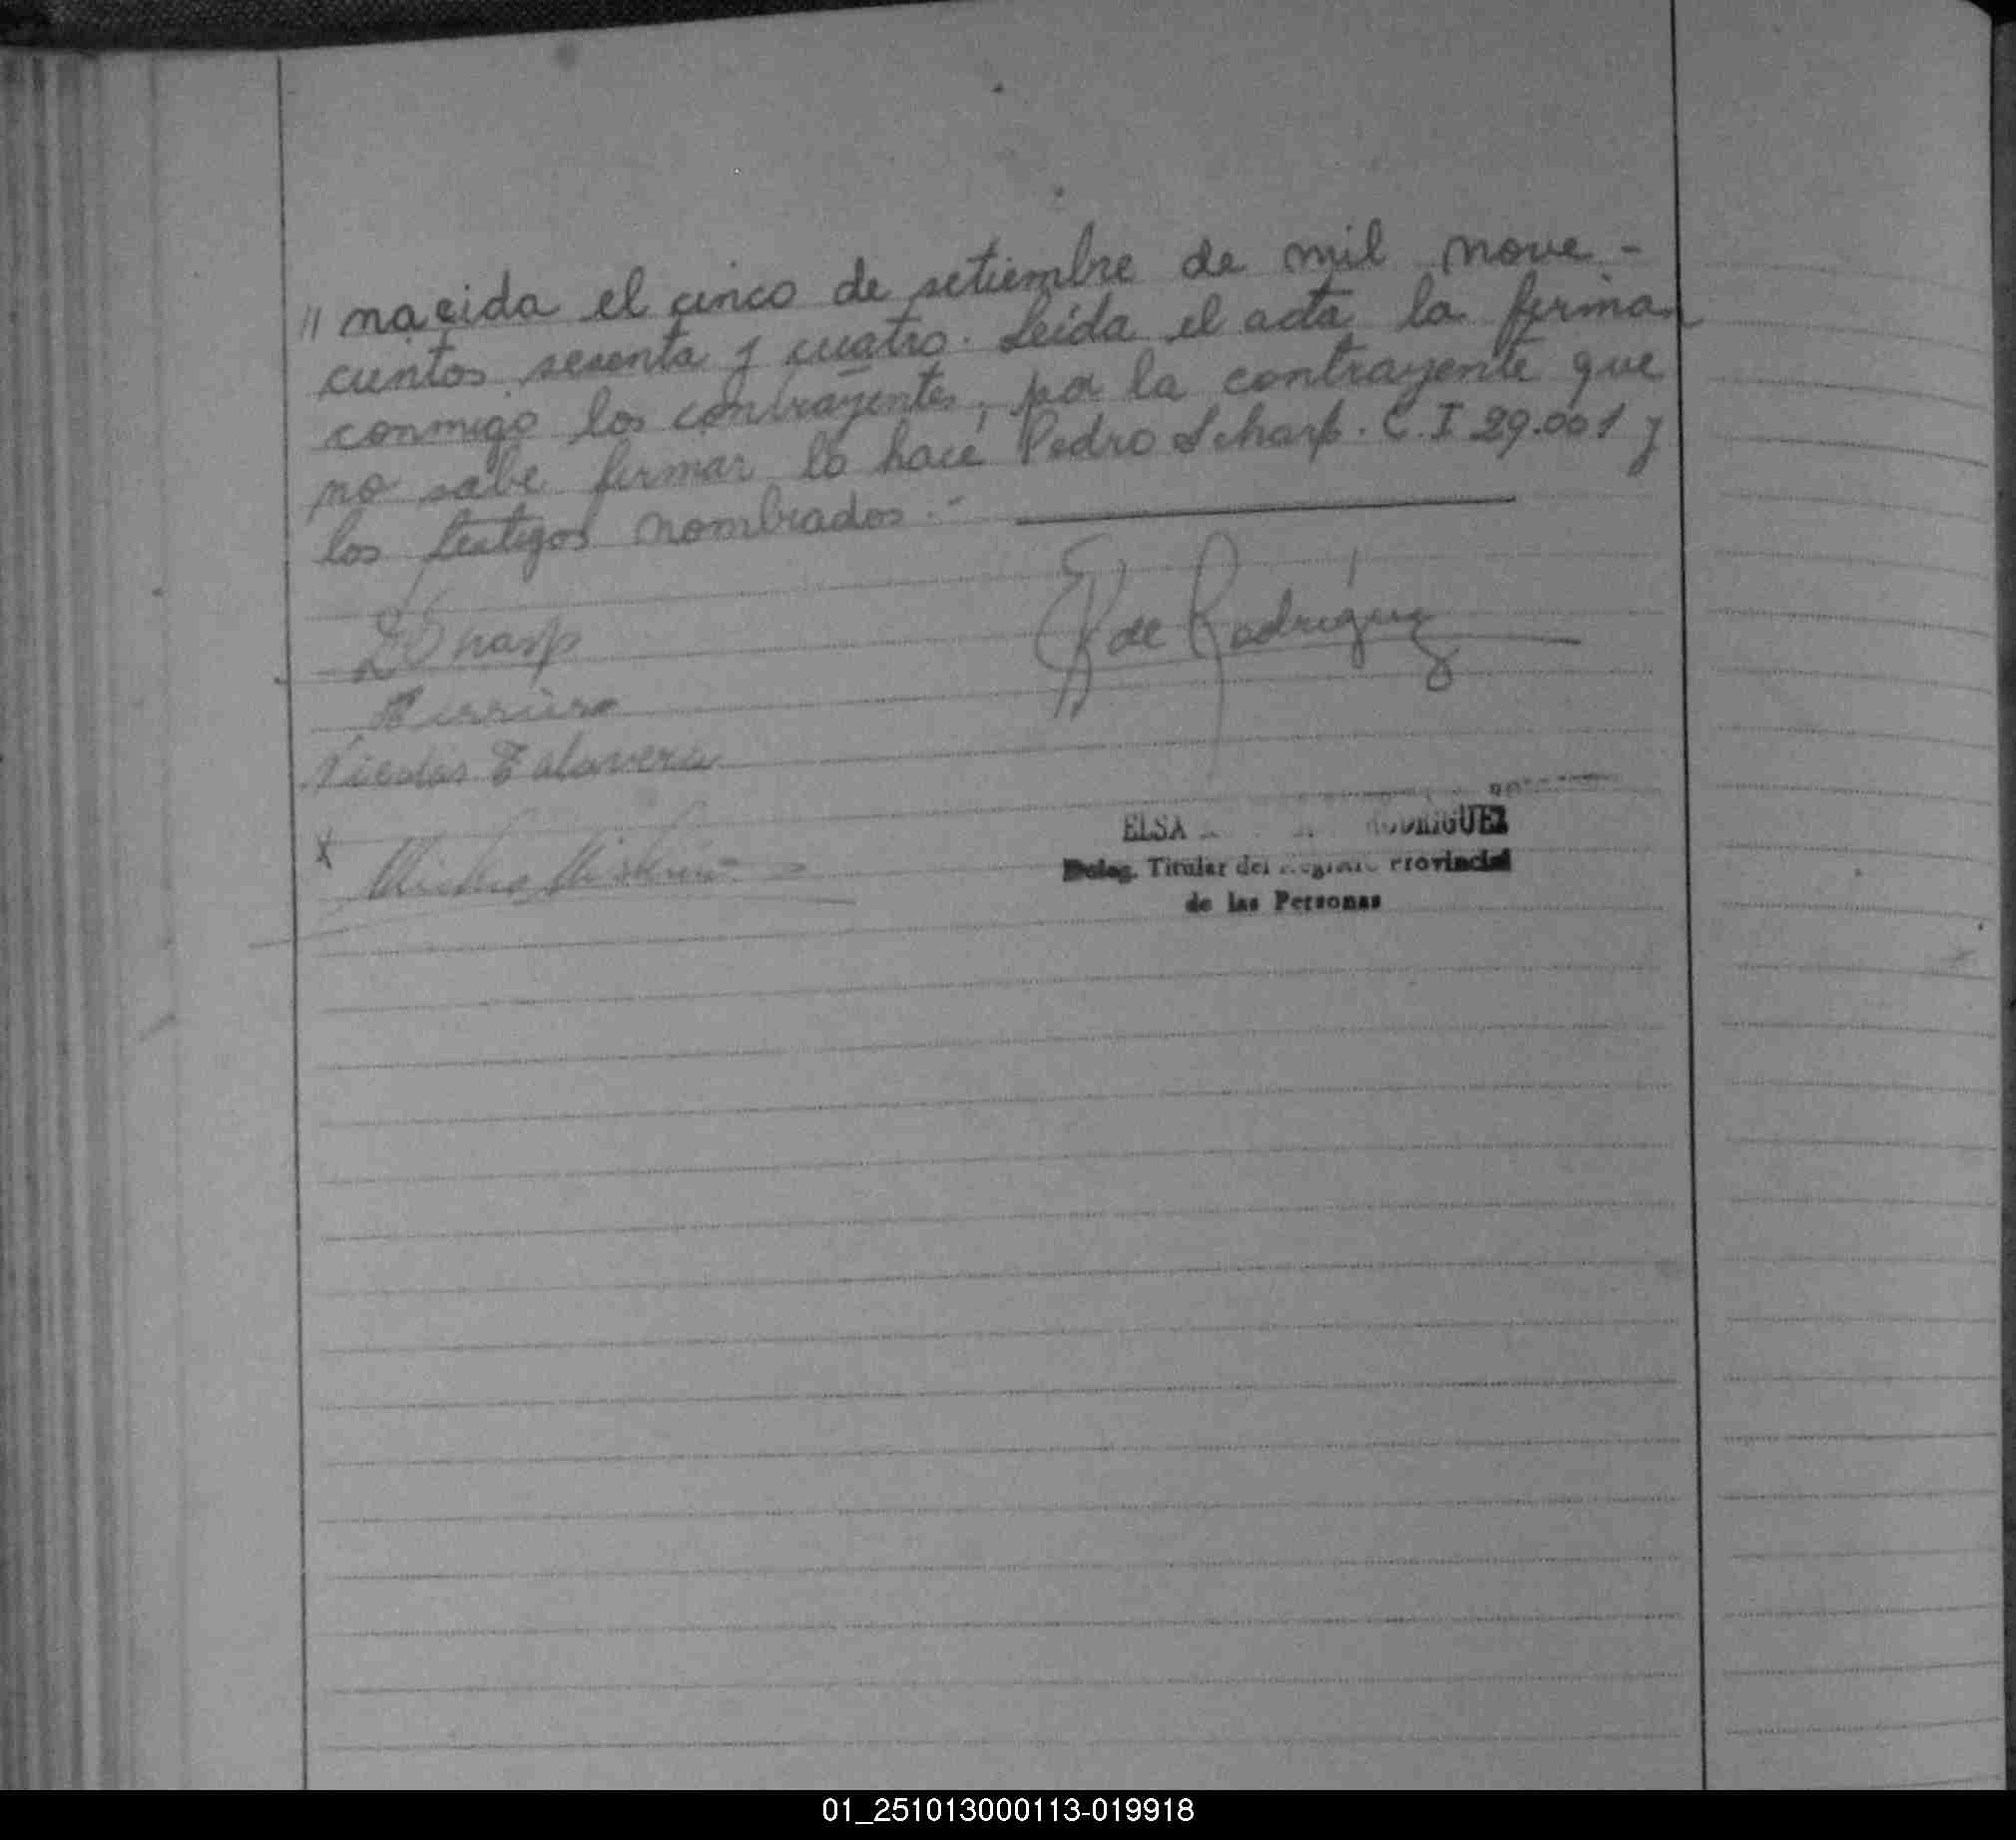 // nacida el cinco de setiembre de mil nove-
cientos sesenta y cuatro. Leída el acta la firman
conmigo los contrayentes, por la contrayente que
no sabe firmar lo hace Pedro Scharf. C.I 29.001 y
los testigos nombrados.-
de Rodríguez
Nicolás Talavera
ELSA RODRIGUEZ
Deleg. Titular del Registro Provincial
de las Personas
01_251013000113-019918